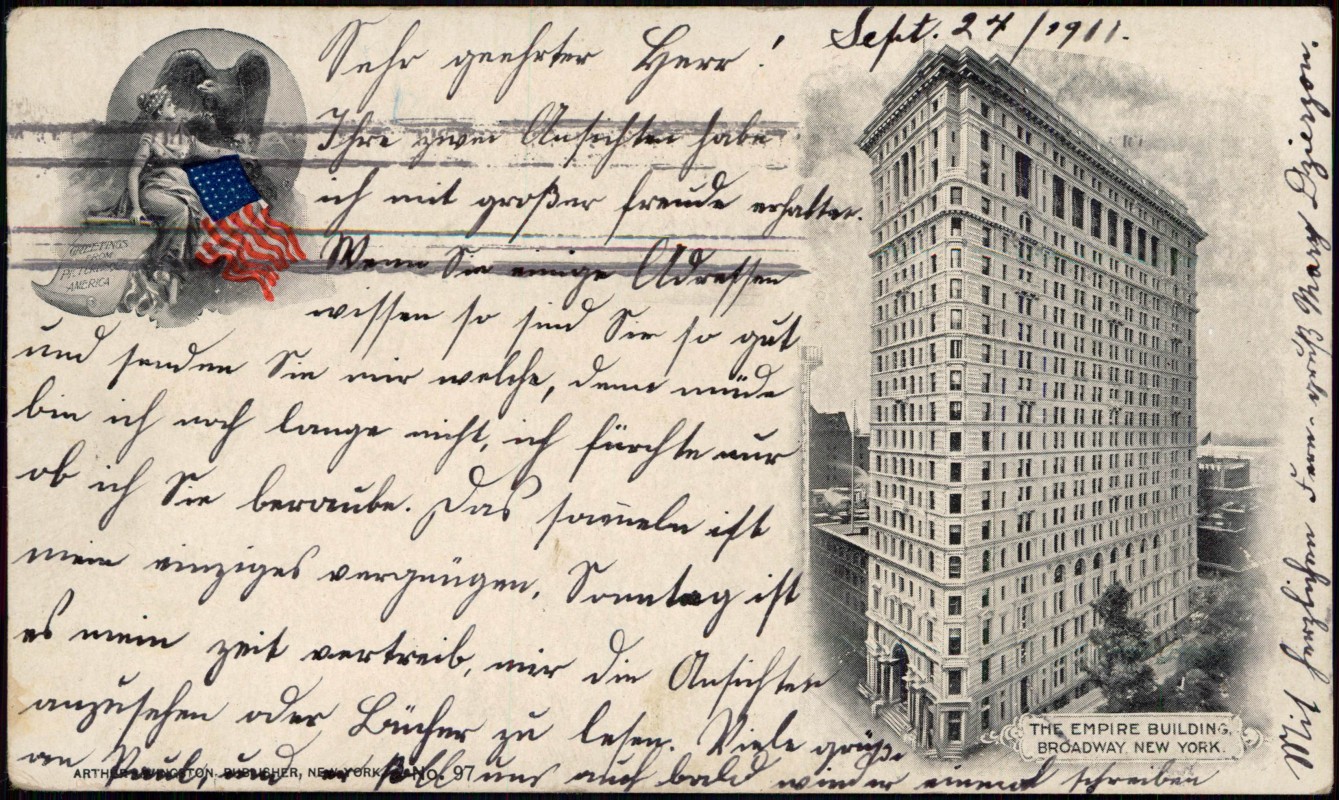 Sept. 24/1911.
Sehr geehrter Herr!
Ihre zwei Ansichten habe
ich mit großer freude erhalten.
Wenn Sie einige Adressen
wissen so sind Sie so gut
und senden Sie mir welche, denn müde
bin ich noch lange nicht, ich fürchte nur
ob ich Sie beraube. Das sam̄eln ist
mein einziges vergnügen, Sonntag ist
es mein zeit vertreib, mir die Ansichten
anzusehen oder Bücher zu lesen. Viele grüße
an Paul, und soll uns auch bald wieder einmal schreiben
Mit herzlichen Fern-gruß Mary Dzierzon.
GREETINGS
FROM
PICTURESQUE
AMERICA
THE EMPIRE BUILDING,
BROADWAY, NEW YORK.
ARTHUR LIVINGSTON, PUBLISHER, NEW YORK No. 97